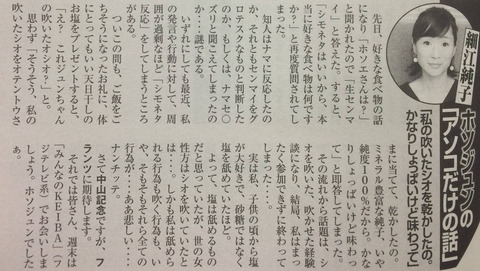 細江純子
ホソジュンの
「アソコだけの話」
「私の吹いたシオを乾かしたの。
かなりしょっぱいけど味わって」
先日、好きな食べ物の話
になり「ホソエさんは?」
と聞かれたので「生センマ
イ」と答えた。すると、
「シモネタはいいから、本
当に好きな食べ物は何です
か?」と再度質問されてし
まった。
知人はナマに反応したの
か、それともセンマイをグ
ロテスクなものと判断した
のか、もしくは、ナマセ〇
ズリと聞こえてしまったの
か。
いずれにしても最近、私
の発言や行動に対して、周
囲が過剰なほど「シモネタ
反応」をしてしまうところ
がある。
ついこの間も、ご飯をご
ちそうになったお礼に、体
にとってもいい天日干しの
お塩をプレゼントすると、
「え? これジュンちゃん
の吹いたオシオ?」と。
思わず「そうそう、私の
吹いたシオをオテントウさ
まに当てて、乾かしたの。
ミネラル豊富な純子、いや
純度100%だから。かな
りしょっぱいけど味わっ
て」と即答してしまった。
その流れから話題は、シ
オを吹いた、吹かせた経験
談になり、結局、私はまっ
たく参加できずに終わって
しまい……。
実は私、子供の頃から塩
が大好きで、砂糖ではなく
塩を舐めていたほど。
よって、塩は舐めるもの
だと思っていたが、世の女
性方はシオを吹いていたと
は……。しかも私は舐めら
れる行為も吹く行為も、い
や、そもそもそれら全ての
行為が……ああ悲しい……
ナンチッテ。
さて中山記念ですが、フ
ランツに期待します。
それでは皆さん、週末は
「みんなのKEIBA」(フ
ジテレビ系)でお会いしま
しょう。ホソジュンでした
ぁ。